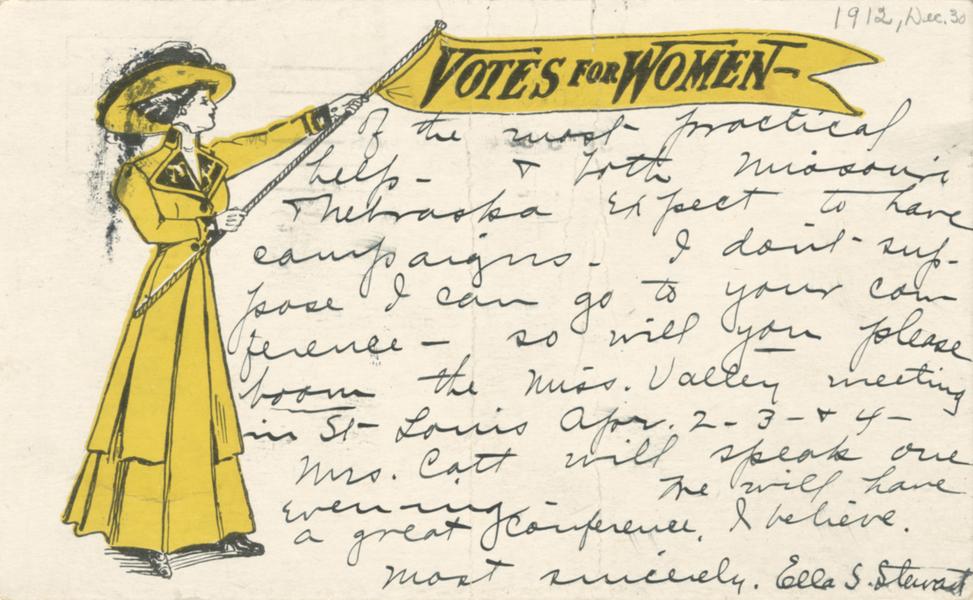 1912, Dec. 30
VOTES FOR WOMEN-
Of the most practical
help - & both Missouri
& Nebraska expect to have
campaigns - I don't sup-
pose I can go to your con
ference - so will you please
boom the Miss. Valley meeting
in St Louis Apr. 2-3-&4-
Mrs. Catt will speak one
evening. We will have
a great conference, I believe.
Most sincerely. Ella S. Stewart